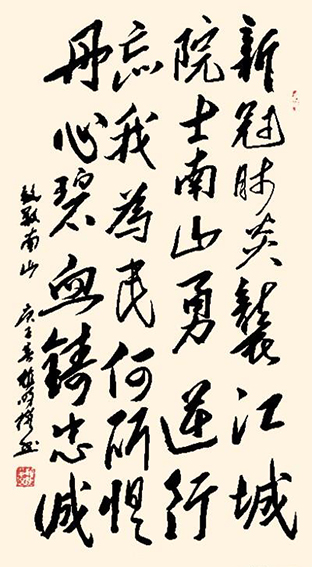 新冠肺炎襲江城
院士南山勇逆行
忘我為民何所惧
丹心碧血鑄忠诚
致敬南山 庚子春